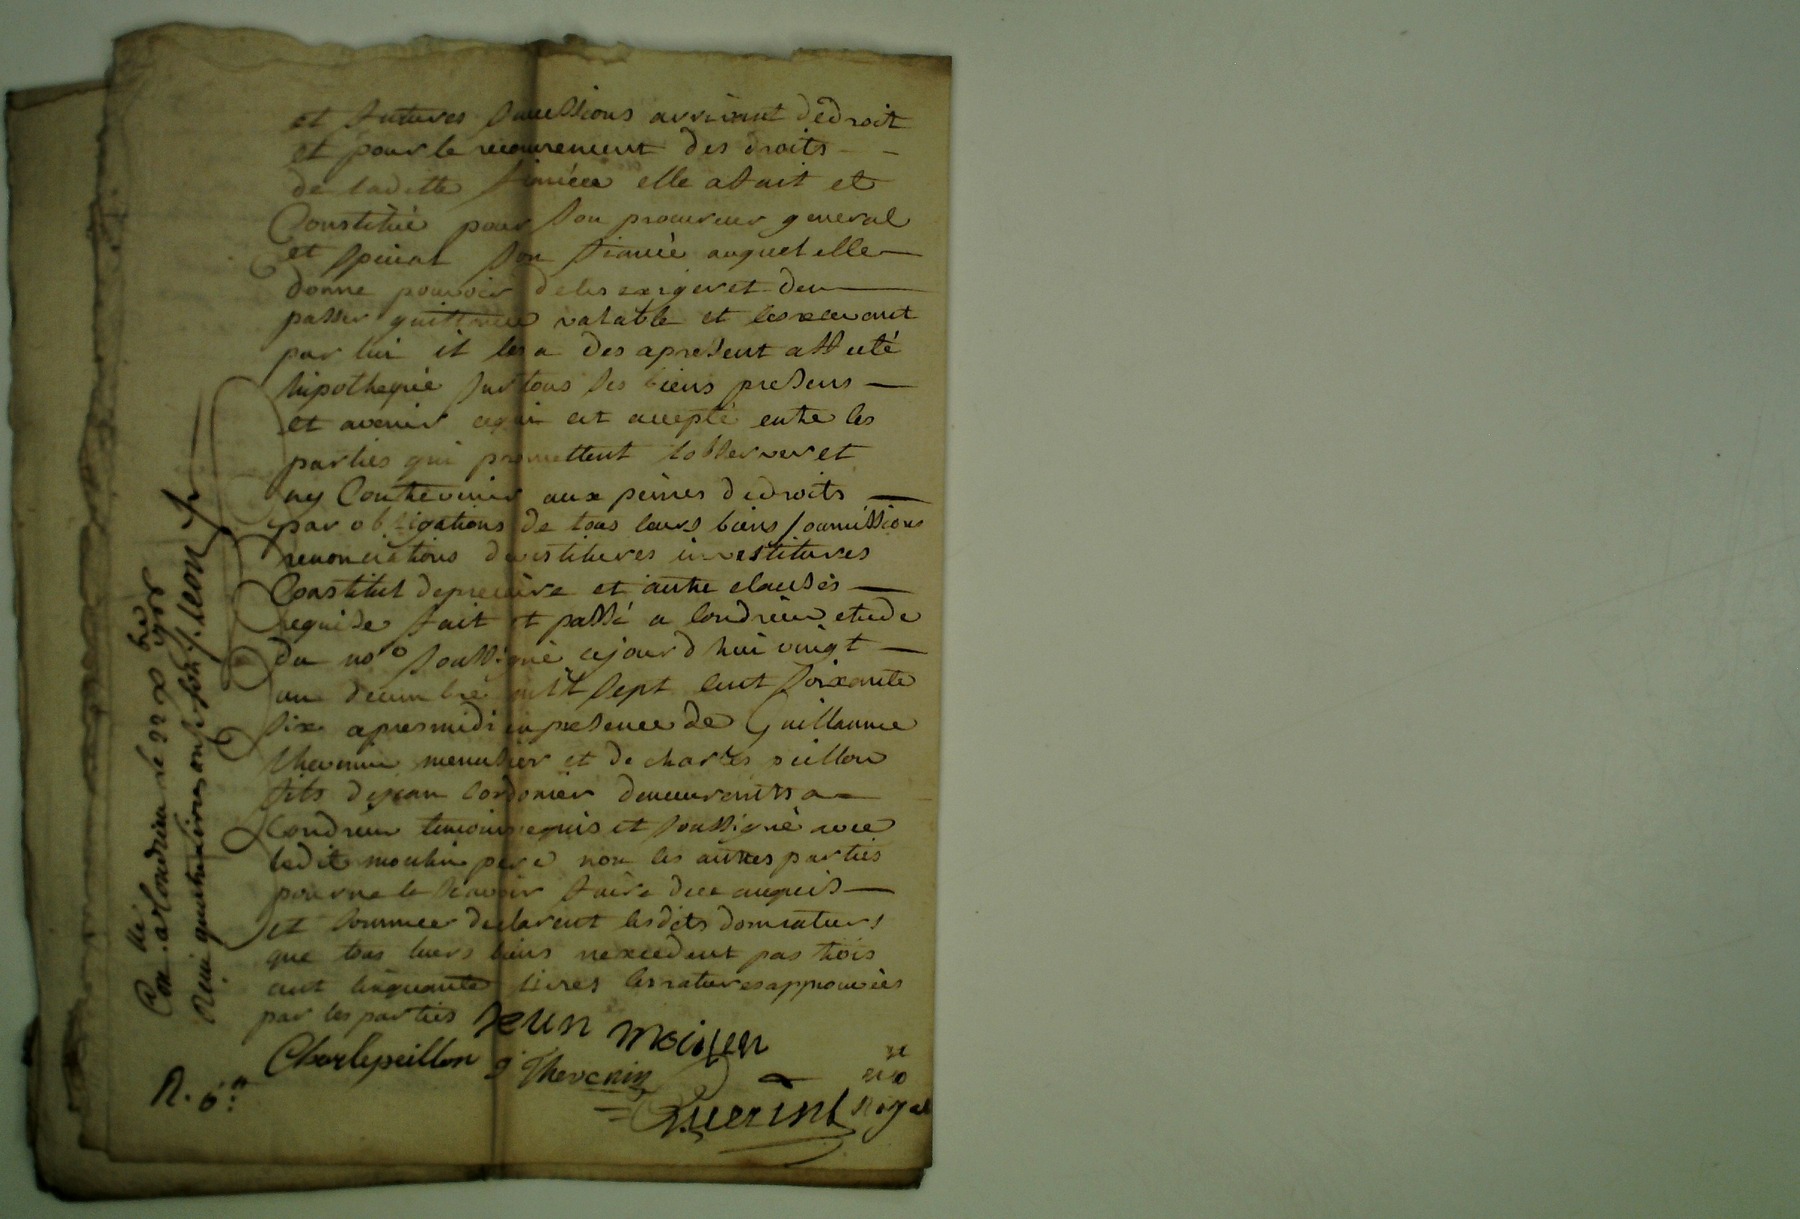 et futures sucessions arrivant de droit
et pour le recouvrement des droits
de ladette fiancée elle a fait et
Constitué pour son procureur general
et special son fiancé auquel elle
donne pouvoir de les exiger et den
passer quittance valable et les recevant
par lui il les a des apresent assuté
hipothequé sur tous ses biens presens
et avenir ce qui est accepté entre les
parties qui promettent lobserver et
ny Contrevenir aux peines de droits
par obligations de tous leurs biens soumissions
renonciations devestitures investitures
Constitut de precaire et autre clauses
requise fait et passé a Condrieu etude
du no.re soussigné cejourd hui vingt
un decembre mil sept cent soixante
six apres midi en presence de Guillaume
thevenin menusier et de charles peillon
fils de jean Cordonier demeurants a
Condrieu temoins requis et soussigné avec
ledit moulin pere non les autres parties
pour ne le scavoir faire de ce enquis
et sommee declarent lesdits donnateurs
que tous luers biens nexcedent pas trois
cent cinquante livres les ratures approuvées
par les parties Jean moulen
Charle peillon g. Thevenin
Guerin no.re Royal
Con.lé a Condrieu le 22 xbre 1766
Reçu quatre livres onze sols
R. 6.